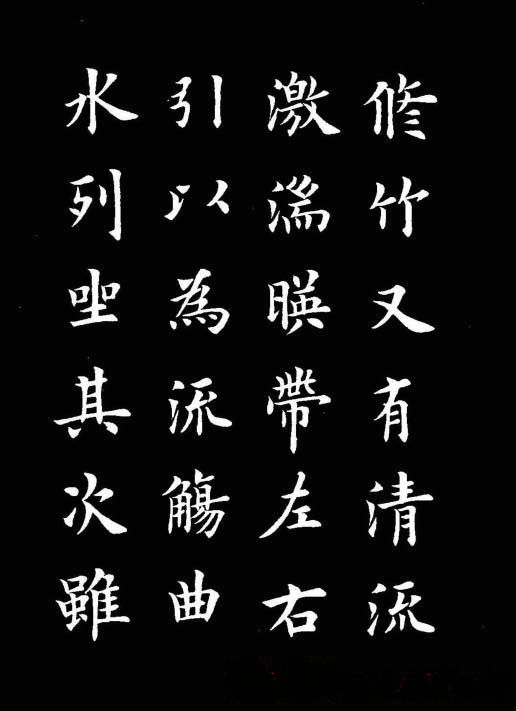 修竹又有清流
激湍暎帶左右
引以為流觴曲
水列坐其次雖